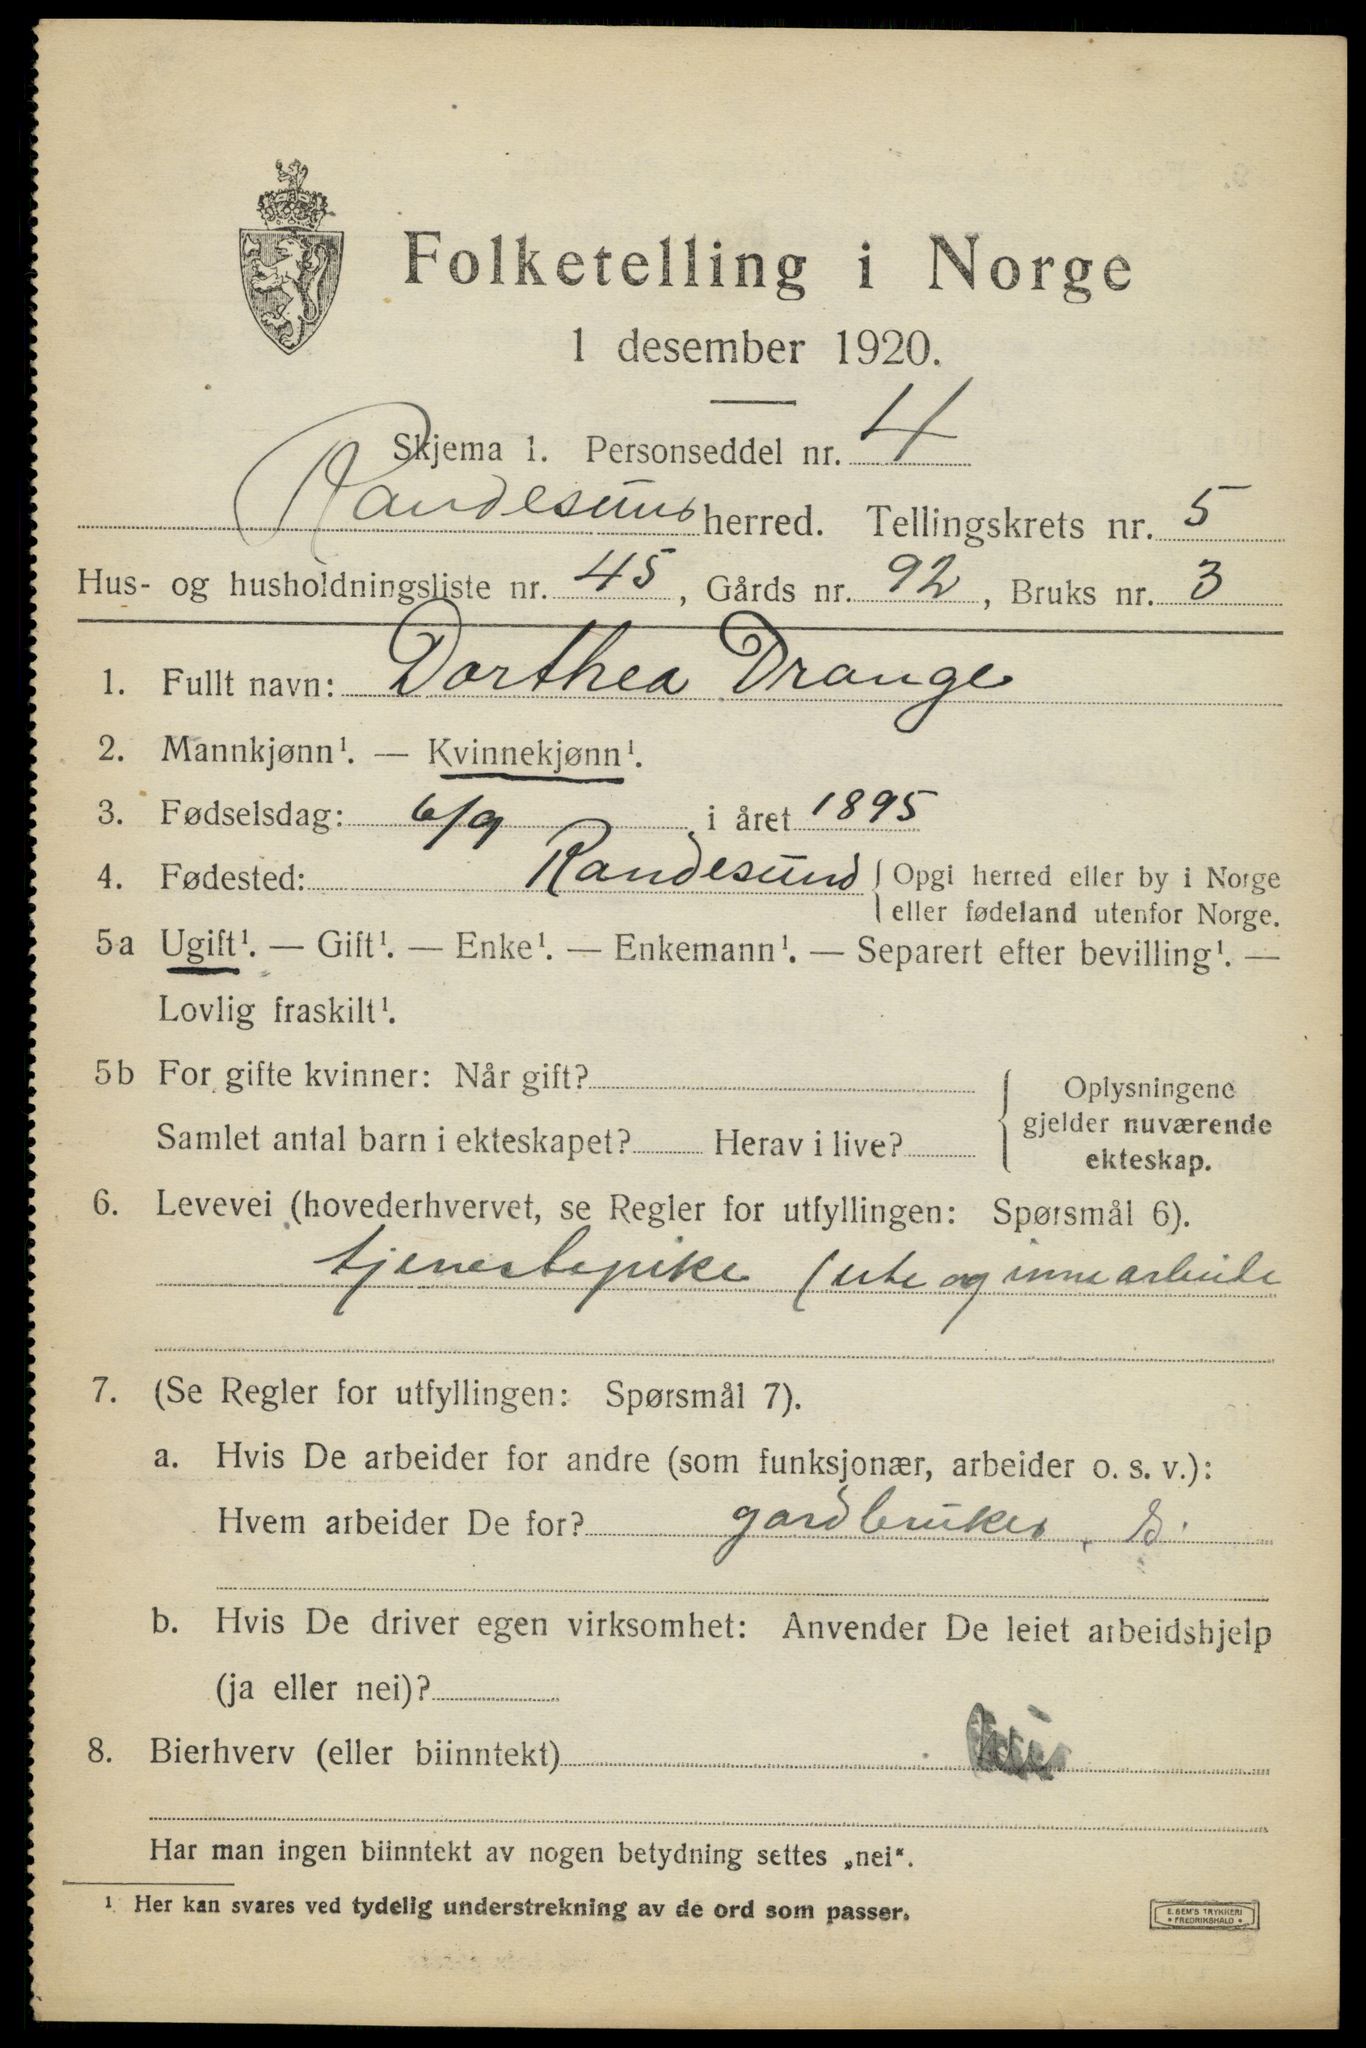 Folketelling i Norge
1 desember 1920.
Skjema 1. Personseddel nr. 4
Randesund herred. Tellingskrets nr. 5
Hus- og husholdningsliste nr. 45, Gårds nr. 92, Bruks nr. 3
1. Fullt navn: Dorthea Drange
2. Mannkjønn¹. — Kvinnekjønn¹.
3. Fødselsdag: 6/9 i året 1895
4. Fødested: Randesund { Opgi herred eller by i Norge
eller fødeland utenfor Norge.
5a Ugift¹. — Gift¹. — Enke¹. — Enkemann¹. — Separert efter bevilling¹. —
Lovlig fraskilt¹.
5b For gifte kvinner: Når gift?
Samlet antal barn i ekteskapet? Herav i live?
Oplysningene
gjelder nuværende
ekteskap.
6. Levevei (hovederhvervet, se Regler for utfyllingen: Spørsmål 6).
tjenestepike (ute og inne arbeide
7. (Se Regler for utfyllingen: Spørsmål 7).
a. Hvis De arbeider for andre (som funksjonær, arbeider o. s. v.):
Hvem arbeider De for? gardbruker
b. Hvis De driver egen virksomhet: Anvender De leiet arbeidshjelp
(ja eller nei)?
8. Bierhverv (eller biinntekt)
Har man ingen biinntekt av nogen betydning settes „nei“.
¹ Her kan svares ved tydelig understrekning av de ord som passer.
E. SEM'S TRYKKERI
• FREDRIKSHALD •